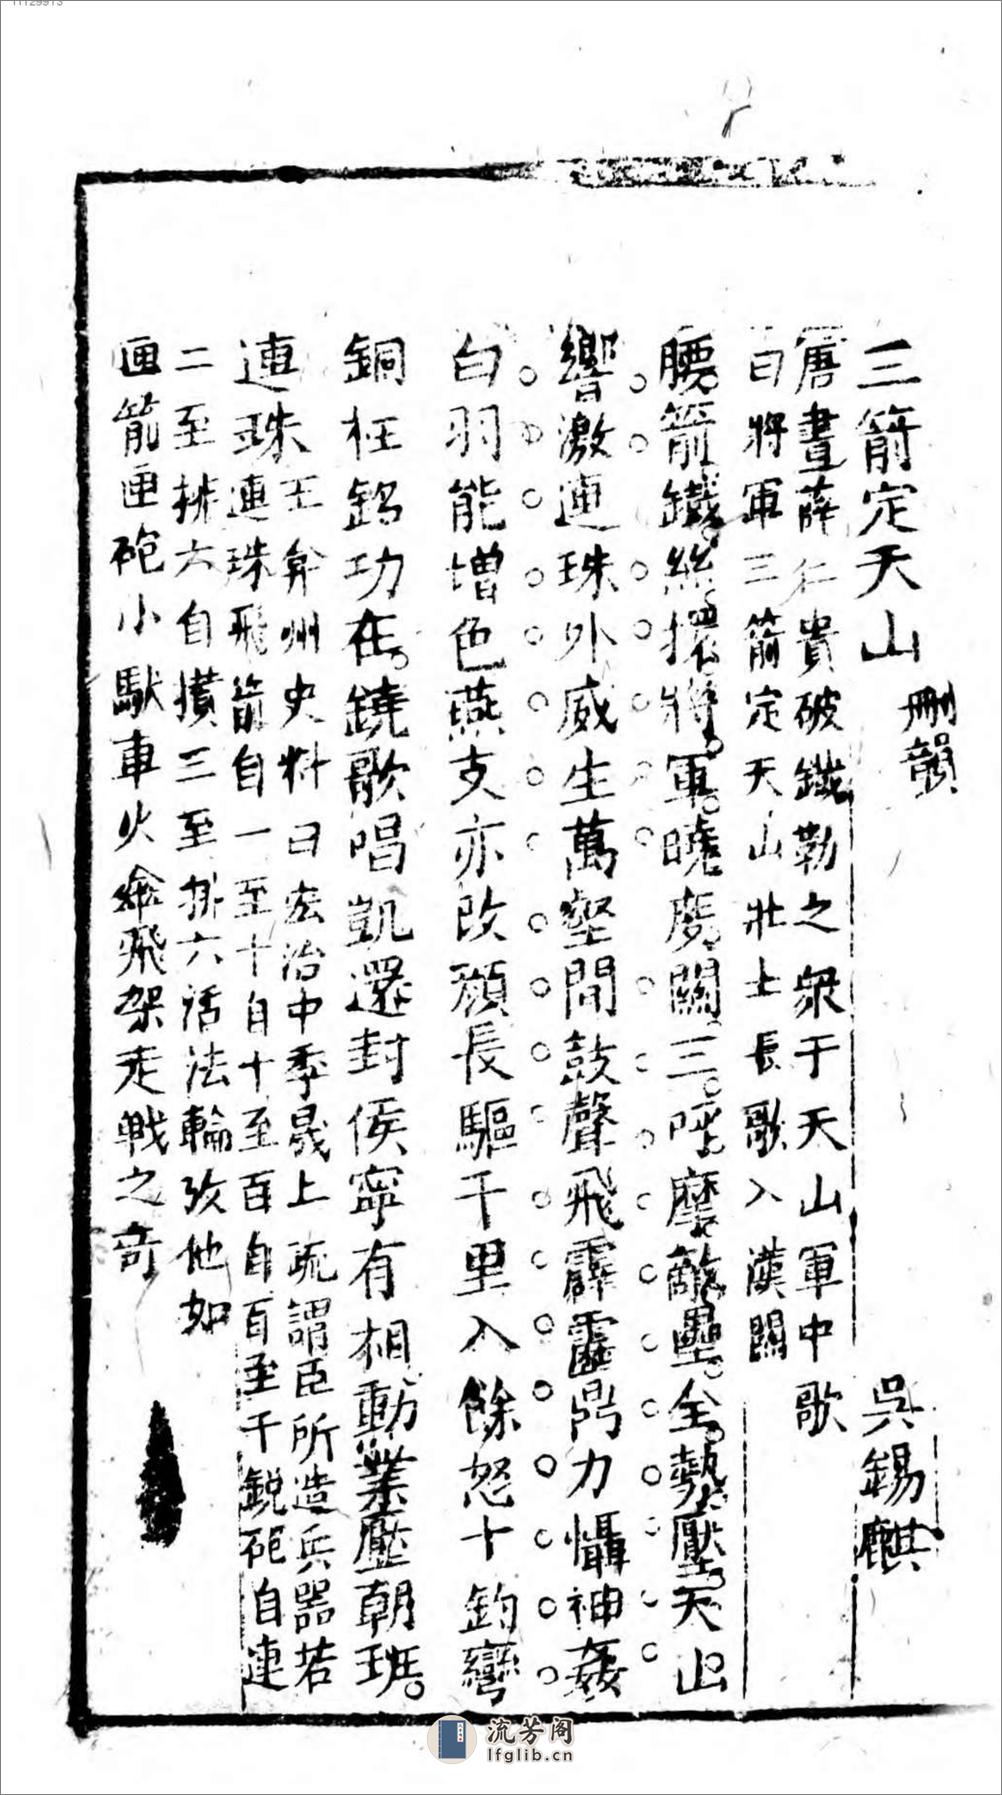 三箭定天山 刪韻 吳錫麒
唐書薛仁貴破鐵勒之眾于天山軍中歌
曰將軍三箭定天山壯士長歌入漢關
腰箭鐵絲擐將軍曉度關三呼摩敵壘全勢壓天山
響激連珠外威生萬壑間鼓聲飛霹靂鬥力懾神姦
白羽能增色燕支亦改顏長驅千里入餘怒十鈞彎
銅柱銘功在鐃歌唱凱還封侯寧有相勳業壓朝班
連珠王弇州史料曰宏治中季晟上疏謂臣所造兵器若
連珠飛箭自一至十自十至百自百至千銳砲自連
二至排六自攢三至排六活法輪攻他如
匣箭匣砲小馱車火傘飛架走戰之奇
流芳阁
lfglib.cn